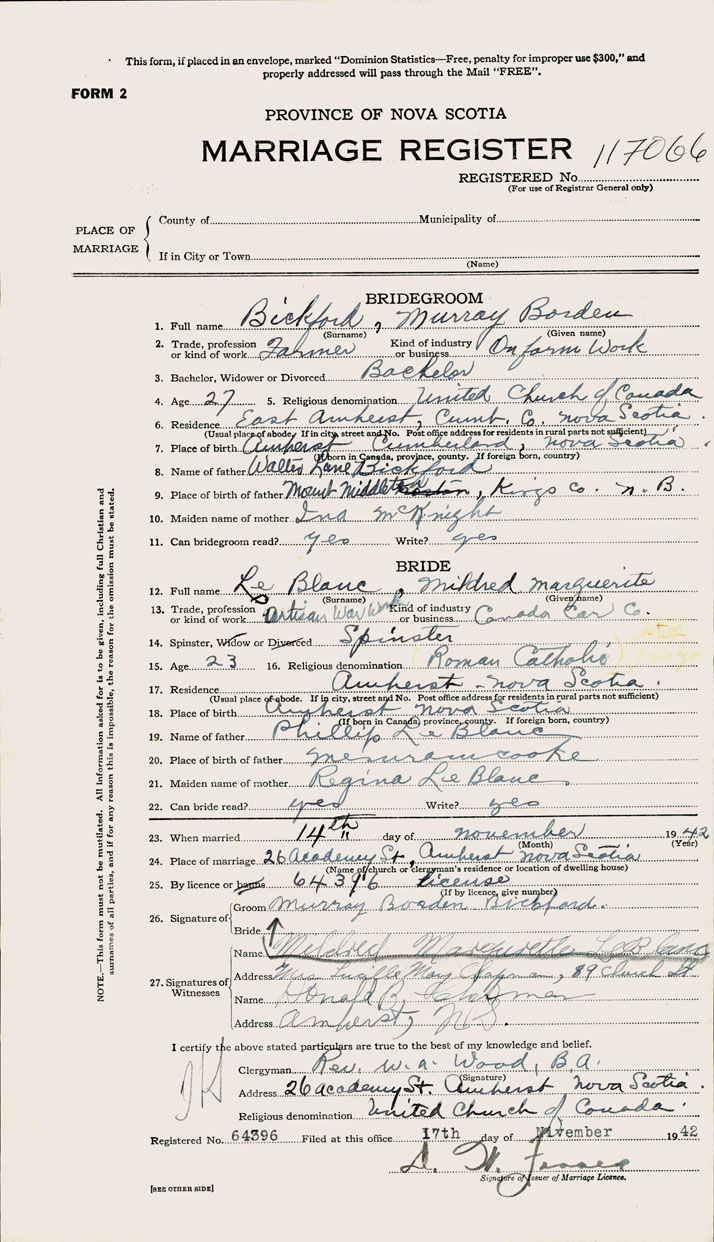 This form, if placed in an envelope, marked "Dominion Statistics—Free, penalty for improper use $300," and
properly addressed will pass through the Mail "FREE".
FORM 2
PROVINCE OF NOVA SCOTIA
MARRIAGE REGISTER 117066
REGISTERED No.
(For use of Registrar General only)
PLACE OF MARRIAGE
County of Municipality of
If in City or Town
(Name)
BRIDEGROOM
1. Full name Bickford, Murray Borden
(Surname) (Given name)
2. Trade, profession or kind of work Farmer Kind of industry or business On farm Work
3. Bachelor, Widower or Divorced Bachelor
4. Age 27 5. Religious denomination United Church of Canada
6. Residence East Amherst, Cumb. Co. Nova Scotia.
(Usual place of abode. If in city, street and No. Post office address for residents in rural parts not sufficient)
7. Place of birth Amherst Cumberland, Nova Scotia.
(If born in Canada, province, county. If foreign born, country)
8. Name of father Walter Lane Bickford
9. Place of birth of father Mount Middleton, Kings Co. N.B.
10. Maiden name of mother Ina McKnight
11. Can bridegroom read? yes Write? yes
BRIDE
12. Full name Le Blanc, Mildred Marguerite
(Surname) (Given name)
13. Trade, profession or kind of work Artisan War Work Kind of industry or business Canada Car Co.
14. Spinster, Widow or Divorced Spinster
15. Age 23 16. Religious denomination Roman Catholic
17. Residence Amherst - Nova Scotia.
(Usual place of abode. If in city, street and No. Post office address for residents in rural parts not sufficient)
18. Place of birth Amherst Nova Scotia
(If born in Canada, province, county. If foreign born, country)
19. Name of father Phillip Le Blanc
20. Place of birth of father Memramcooke
21. Maiden name of mother Regina Le Blanc
22. Can bride read? yes Write? yes
23. When married 14th day of November 1942
(Month) (Year)
24. Place of marriage 26 Academy St, Amherst Nova Scotia
(Name of church or clergyman's residence or location of dwelling house)
25. By licence or banns 64396 license
(If by licence, give number)
26. Signature of
Groom Murray Borden Bickford.
Bride
Name Mildred Marguerite LeBlanc
Address Mrs Lucille Mary Chapman, 89 Church St
27. Signatures of Witnesses
Name Donald B.
Address Amherst, N.S.
I certify the above stated particulars are true to the best of my knowledge and belief.
Clergyman Rev. W. A. Wood, B.A.
(Signature)
Address 26 Academy St. Amherst Nova Scotia.
Religious denomination United Church of Canada.
Registered No. 64396 Filed at this office 17th day of Nivember 1942
Signature of Issuer of Marriage Licence.
[SEE OTHER SIDE]
NOTE.—This form must not be mutilated. All information asked for is to be given, including full Christian and
surnames of all parties, and if for any reason this is impossible, the reason for the omission must be stated.